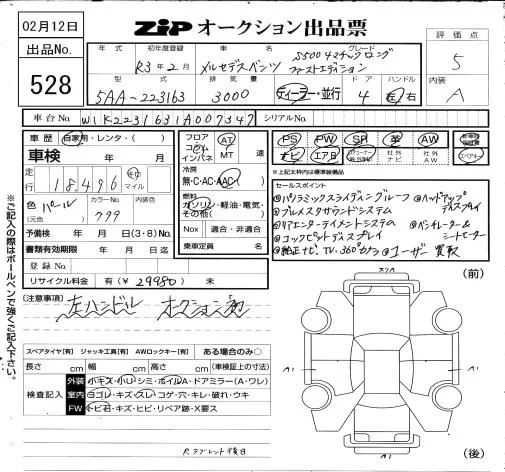 02月12日
ZIP オークション出品票
評価点
出品No.
528
5
年式 初年度登録 車名 グレード
R3年2月 メルセデスベンツ S500 4マチックロング
ファーストエディション
内装
A
型式 排気量 ドア ハンドル
5AA-223163 3000 ディーラー・並行 4 左・右
車台No. W1K2231631A007347 シリアルNo.
車歴 自家用・レンタ・( )
車検 年 月
走行 18,496 km マイル
色(元色) パール カラーNo. 799 内装色
予備検 年 月 日(3・8)No.
書類有効期限 年 月 日迄
登録No.
リサイクル料金 有(¥ 29980) 未
フロア コラム インパネ AT MT 速
冷房 無・C・AC・AAC( )
燃料 ガソリン・軽油・電気・その他( )
Nox 適合・非適合
乗車定員 名
PS PW SR 革 AW
ナビ エアB 社外ナビ 社外AW スペアキー
※上記太枠内は標準装備品
セールスポイント
@パノラミックスライディングルーフ @ヘッドアップディスプレイ
@ブルメスタサウンドシステム
@リアエンターテイメントシステム @ベンチレーター&シートヒーター
@コックピットディスプレイ
@純正ナビ、TV、360°カメラ @ユーザー買取
(注意事項) 左ハンドル
(前)
スペアタイヤ[有] ジャッキ工具[有] AWロックキー[有] ある場合のみ○
長さ cm 幅 cm 高さ cm (車検証上の寸法)
検査記入
外装 小キズ・小U・シミ・ボイルA・ドアミラー(A・ワレ)
室内 ヨゴレ・キズ・スレ・コゲ・穴・キレ・破れ・ウキ
FW トビ石・キズ・ヒビ・リペア跡・X要ス
(後)
※ご記入の際はボールペンで強くご記入下さい。